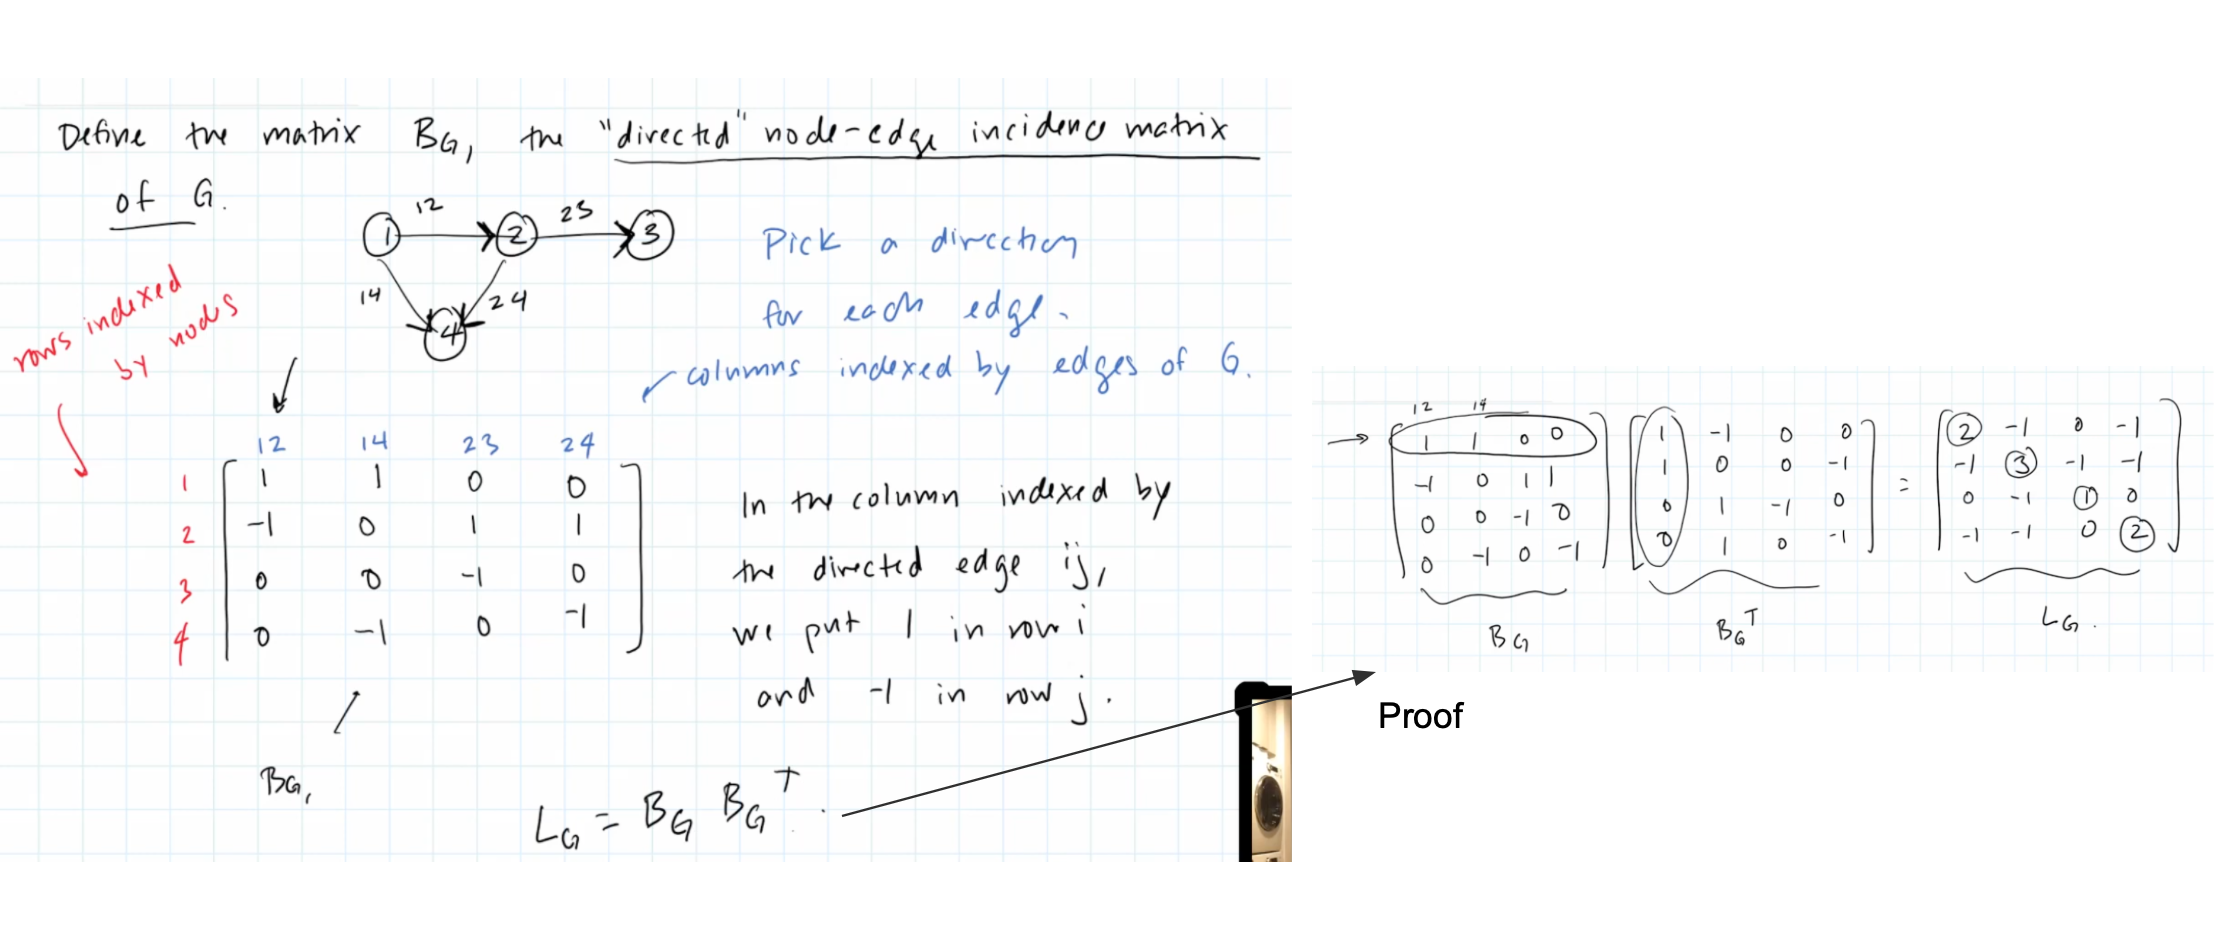 Define the matrix B_G, the "directed" node-edge incidence matrix
of G.
12
23
1
2
3
14
24
4
Pick a direction
for each edge.
rows indexed
by nodes
columns indexed by edges of G.
12 14 23 24
1 1 1 0 0
2 -1 0 1 1
3 0 0 -1 0
4 0 -1 0 -1
B_G,
In the column indexed by
the directed edge ij,
we put 1 in row i
and -1 in row j.
L_G = B_G B_G^T.
12 14
1 1 0 0
-1 0 1 1
0 0 -1 0
0 -1 0 -1
B_G
1 -1 0 0
1 0 0 -1
0 1 -1 0
0 1 0 -1
B_G^T
=
2 -1 0 -1
-1 3 -1 -1
0 -1 1 0
-1 -1 0 2
L_G.
Proof